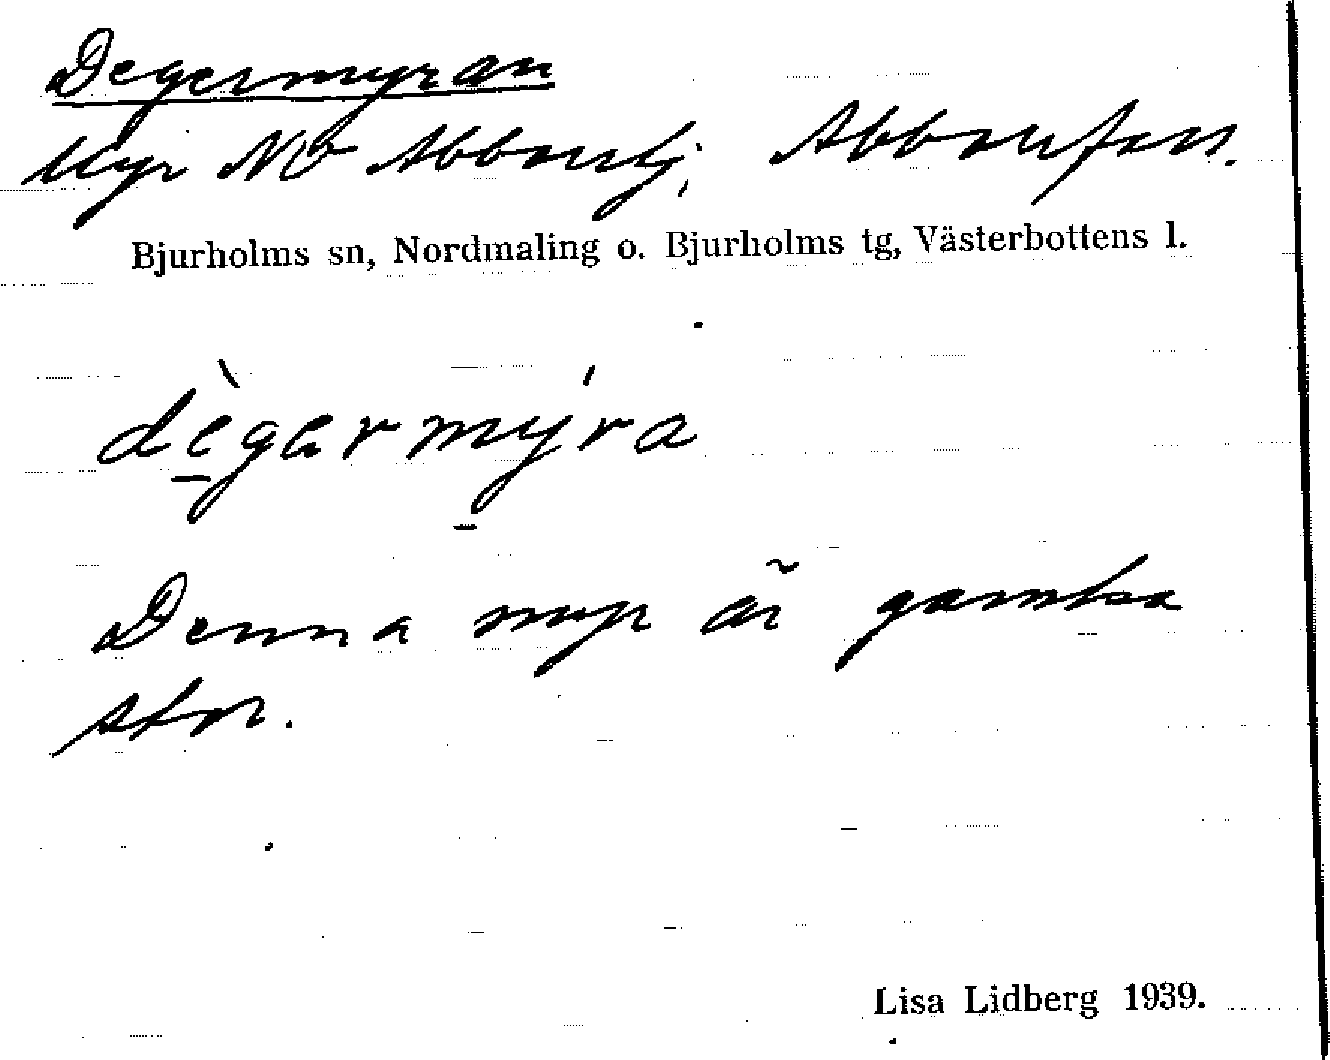 Degermyran
Myr NO Abbortj; Abborrfors.
Bjurholms sn, Nordmaling o. Bjurholms tg, Västerbottens l.
dègermýra
Denna myr är ganska
stor.
Lisa Lidberg 1939.